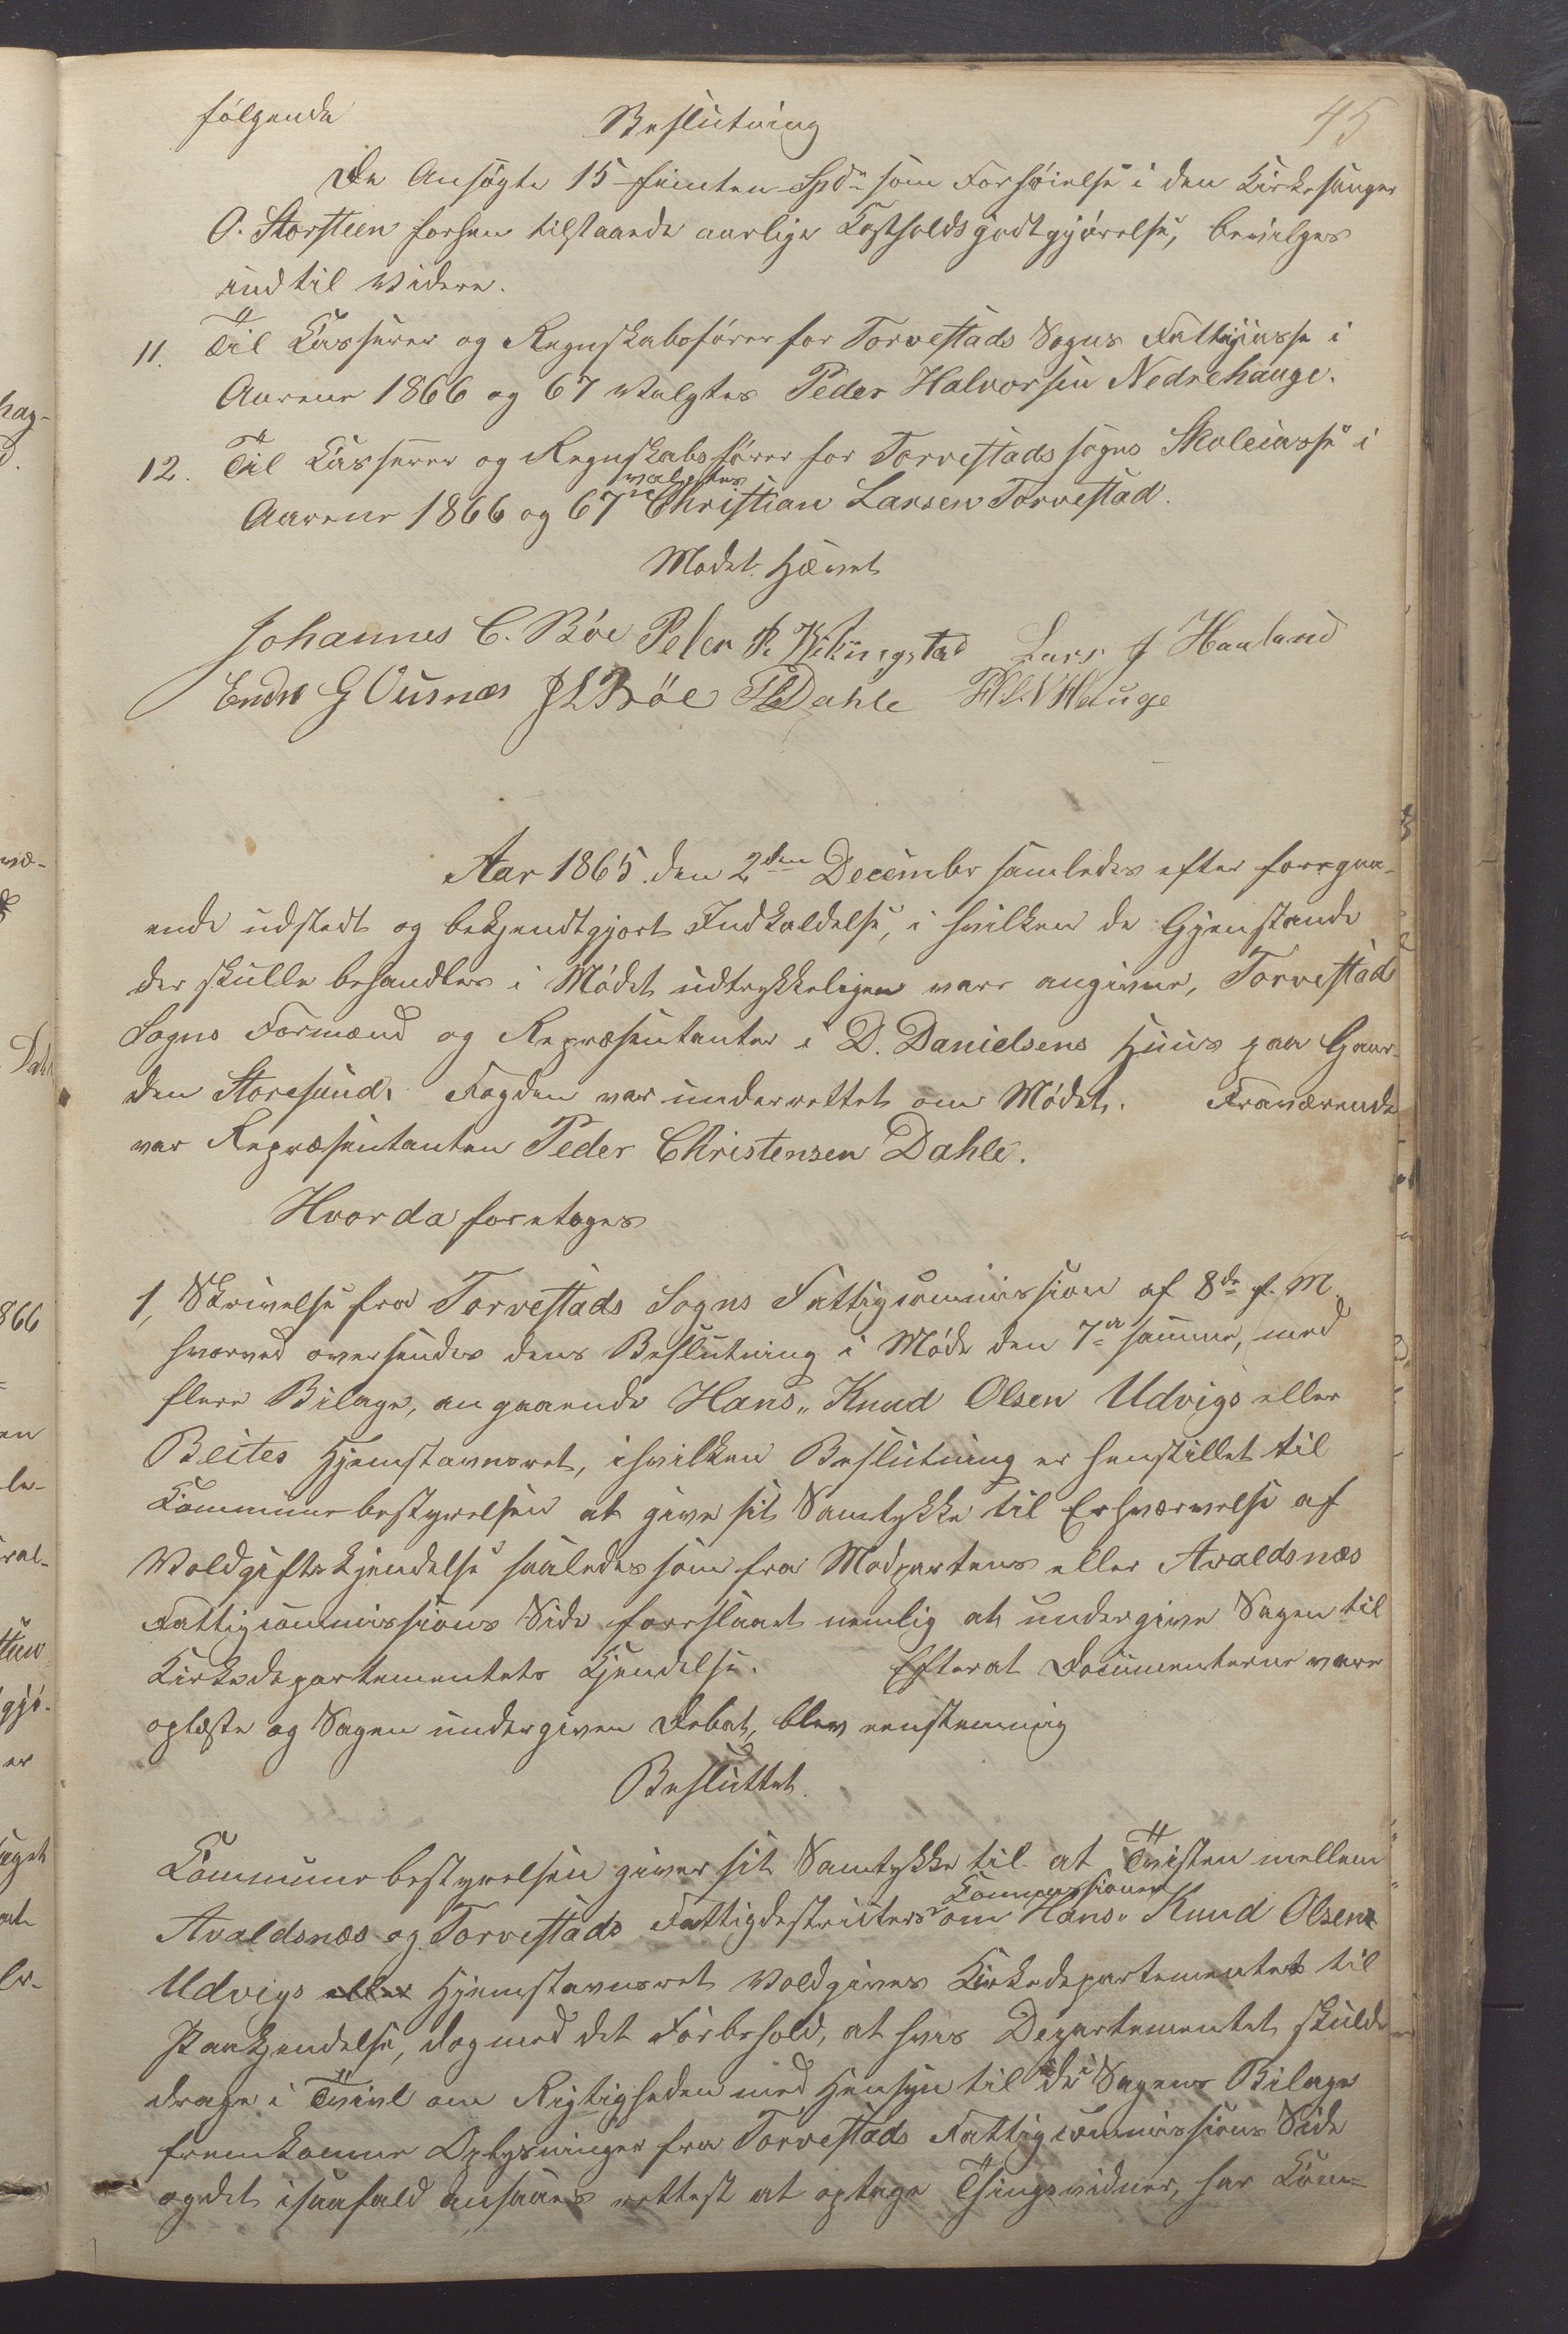 45
følgende Beslutning
De Ansøgte 15 femten Spdr som Forhøielse i den Kirkesanger
O. Storsteen forhen tilstaaede aarlige Kostholdsgodtgjørelse, bevilges
indtil Videre.
11. Til Kasserer og Regnskabsfører for Torvestads Sogns Fattigcasse i
Aarene 1866 og 67 valgtes Peder Halvorsen Nedrehauge.
12. Til Kasserer og Regnskabsfører for Torvestads sogns Skolecasse i
Aarene 1866 og 67 valgtes Christian Larsen Torvestad.
Mødet hævet
Johannes C. Böe Peder P. Wikingstad Lars J Haaland
Endre G Vusnæs J L Böe Dahle Hauge
Aar 1865 den 2den December samledes efter forregaa-
ende udstedt og bekjendtgjort Indkaldelse, i hvilken de Gjenstande
der skulle behandles i Mødet udtrykkeligen vare angivne, Torvestad
Sogns Formænd og Repræsentanter i D. Danielsens Huus paa Gaar-
den Storesund. Fogden var underrettet om Mødet. Fraværende
var Repræsentanten Peder Christensen Dahle.
Hvorda foretoges
1, Skrivelse fra Torvestads Sogns Fattigcommission af 8de f. M.
hvorved oversendes dens Beslutning i Møde den 7de samme, med
flere Bilage, angaaende Hans Knud Olsen Udvigs eller
Beites Hjemstavnsret, ihvilken Beslutning er henstillet til
Kommunebestyrelsen at give sit Samtykke til Erhværvelse af
Voldgiftskjendelse saaledes som fra Modpartens eller Avaldsnæs
Fattigcommissions Side foreslaaet nemlig at undergive Sagen til
Kirkedepartementets Kjendelse. Efterat Documenterne vare
oplæste og Sagen undergiven Debat, blev eenstemmig
Besluttet.
Kommunebestyrelsen giver sit Samtykke til at Tvisten mellem
Avaldsnæs og Torvestads Fattigdestricters Kommissioner om Hans Knud Olsen
Udvigs eller Hjemstavnsret Voldgives Kirkedepartementet til
Paakjendelse, dog med det Forbehold, at hvis Departementet skulde
drage i Tvivl om Rigtigheden med Hensyn til de i Sagens Bilage
fremkomne Oplysninger fra Torvestads Fattigcommissions Side
og det isaafald ansaaes rettest at optage Thingsvidner, har Kom-